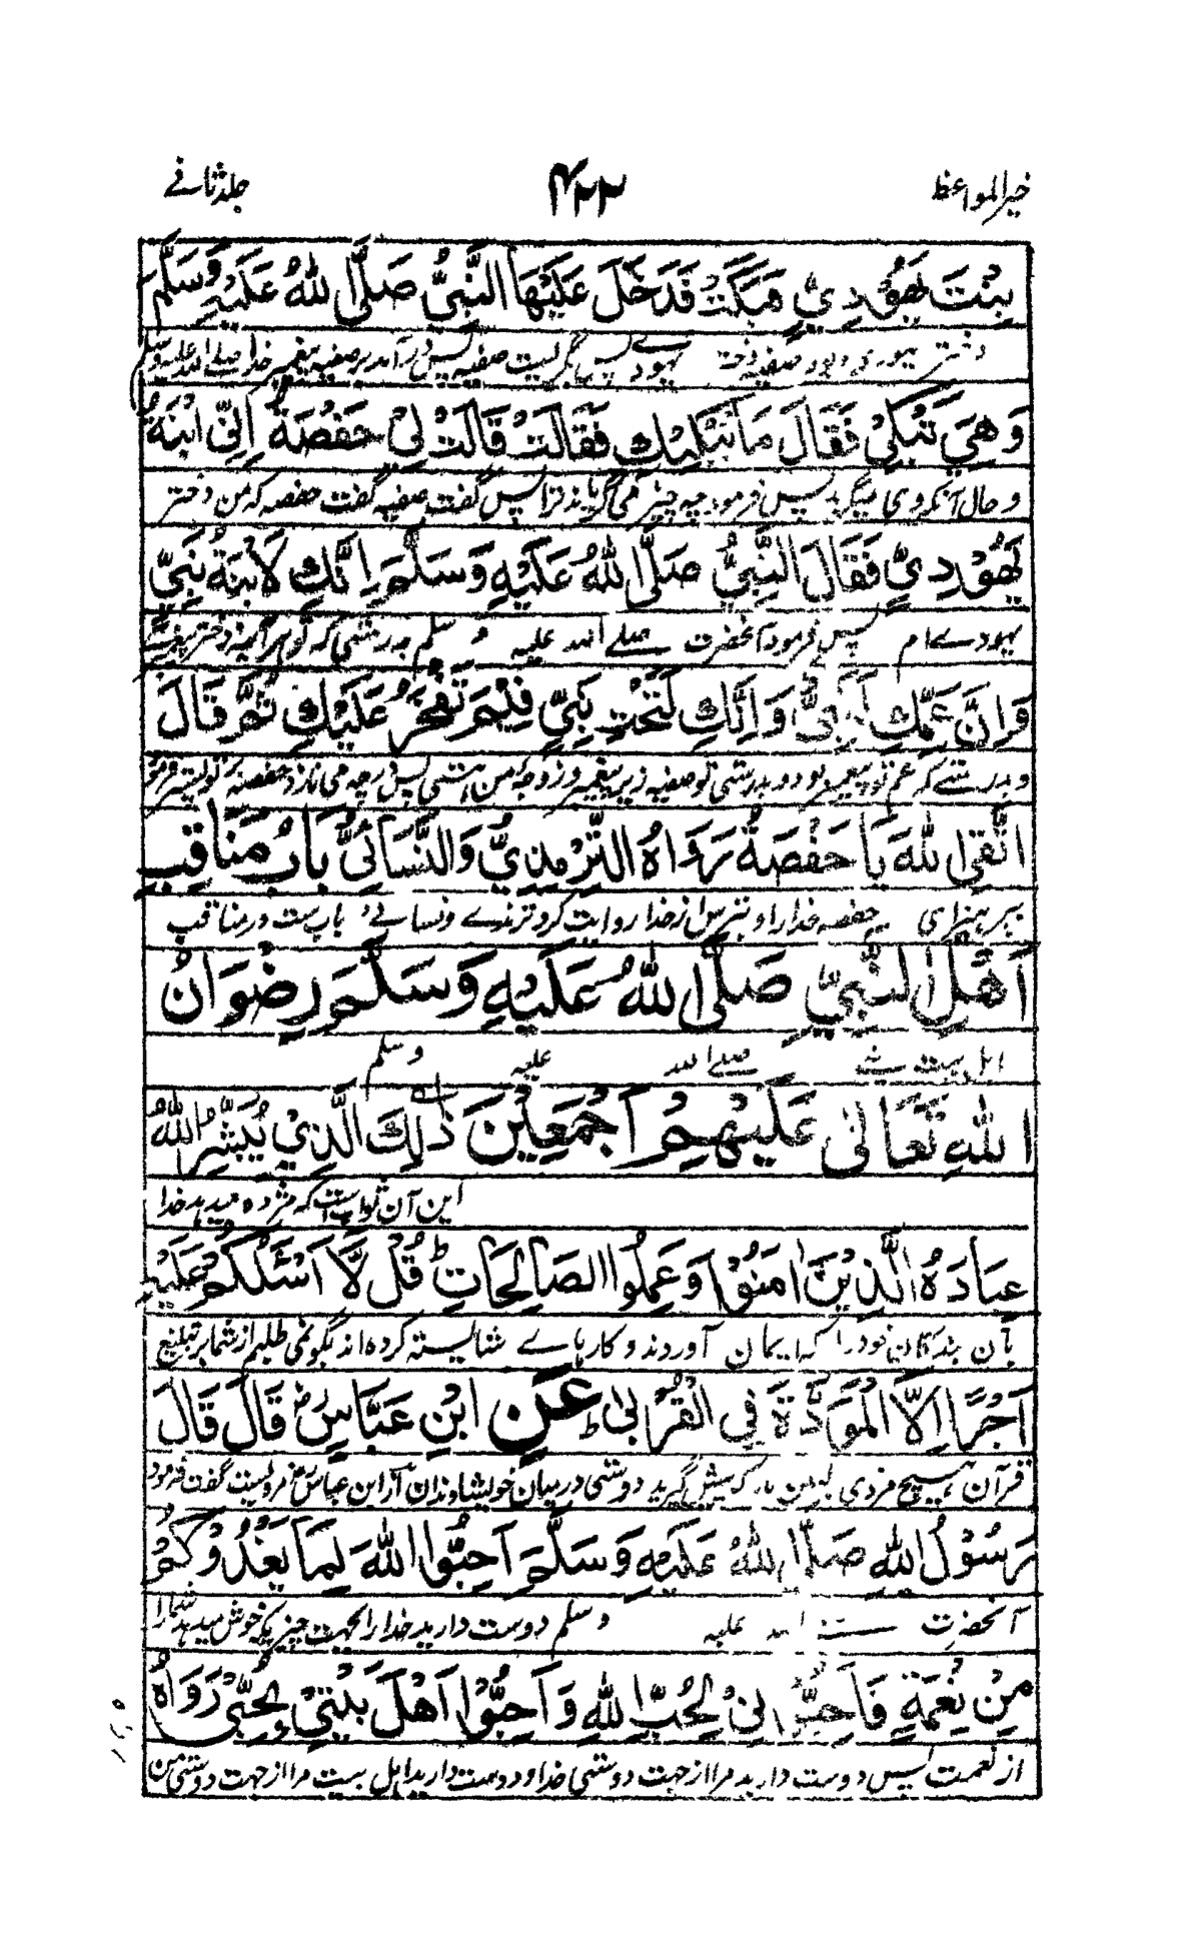 خیر المواعظ ۴۲۳ جلد ثانے
بِنْتَ يَهُوْدِيٍّ فَبَكَتْ فَدَخَلَ عَلَيْهَا النَّبِيُّ صَلَّى اللهُ عَلَيْهِ وَسَلَّمَ
دختر یهودی صفیه پس در آمد بر صفیه پیغمبر خدا صلے الله علیه وسلم
وَهِيَ تَبْكِيْ فَقَالَ مَا يُبْكِيْكِ فَقَالَتْ قَالَتْ لِيْ حَفْصَةُ اِنِّي ابْنَةُ
و حال آنکه وی میگرید پس فرمود چه چیز می گریاند ترا پس گفت صفیه گفت حفصه که من دختر
يَهُوْدِيٍّ فَقَالَ النَّبِيُّ صَلَّى اللهُ عَلَيْهِ وَسَلَّمَ اِنَّكِ لَابْنَةُ نَبِيٍّ
یهودے ام پس فرمود آنحضرت صلے الله علیه وسلم بدرستی که تو هر آئینه دختر پیغمبرے
وَاِنَّ عَمَّكِ لَنَبِيٌّ وَاِنَّكِ لَتَحْتَ نَبِيٍّ فَفِيْمَ تَفْخَرُ عَلَيْكِ ثُمَّ قَالَ
و بدرستے که عم تو پیغمبر بود و بدرستی تو صفیه زیر پیغمبر و زوجه من هستی پس در چه می نازد حفصه بر تو
اتَّقِي اللهَ يَا حَفْصَةُ رَوَاهُ التِّرْمِذِيُّ وَالنَّسَائِيُّ بَابُ مَنَاقِبِ
پرهیزای حفصه خدا را و بترس از خدا روایت کرد ترمذے ونسائے باب ست در مناقب
اَهْلِ النَّبِيِّ صَلَّى اللهُ عَلَيْهِ وَسَلَّمَ رِضْوَانُ
اهل بیت صلے الله علیه وسلم
اللهِ تَعَالٰى عَلَيْهِمْ اَجْمَعِيْنَ ذٰلِكَ الَّذِيْ يُبَشِّرُ اللهُ
این آن ثواب است که مژده میدهد خدا
عِبَادَهُ الَّذِيْنَ اٰمَنُوْا وَعَمِلُوا الصَّالِحَاتِ ط قُلْ لَّا اَسْئَلُكُمْ عَلَيْهِ
بآن بندگان خود را که ایمان آوردند و کارهاے شایسته کرده اند بگو نمی طلبم از شما بر تبلیغ
اَجْرًا اِلَّا الْمَوَدَّةَ فِي الْقُرْبٰى ط عَنِ ابْنِ عَبَّاسٍ رض قَالَ قَالَ
قرآن هیچ مزدی لیکن گیرید دوستی در میان خویشاوندان از ابن عباس رض مرویست گفت فرمود
رَسُوْلُ اللهِ صَلَّى اللهُ عَلَيْهِ وَسَلَّمَ اَحِبُّوا اللهَ لِمَا يَغْذُوْكُمْ
آنحضرت الله علیه وسلم دوست دارید خدا را بجهت چیزیکه خوش میدهد شمارا
مِنْ نِعْمَةٍ فَاَحِبُّوْنِيْ لِحُبِّ اللهِ وَاَحِبُّوْا اَهْلَ بَيْتِيْ لِحُبِّيْ رَوَاهُ
از نعمت پس دوست دارید مرا از جهت دوستی خدا و دوست دارید اهل بیت مرا از جهت دوستی من